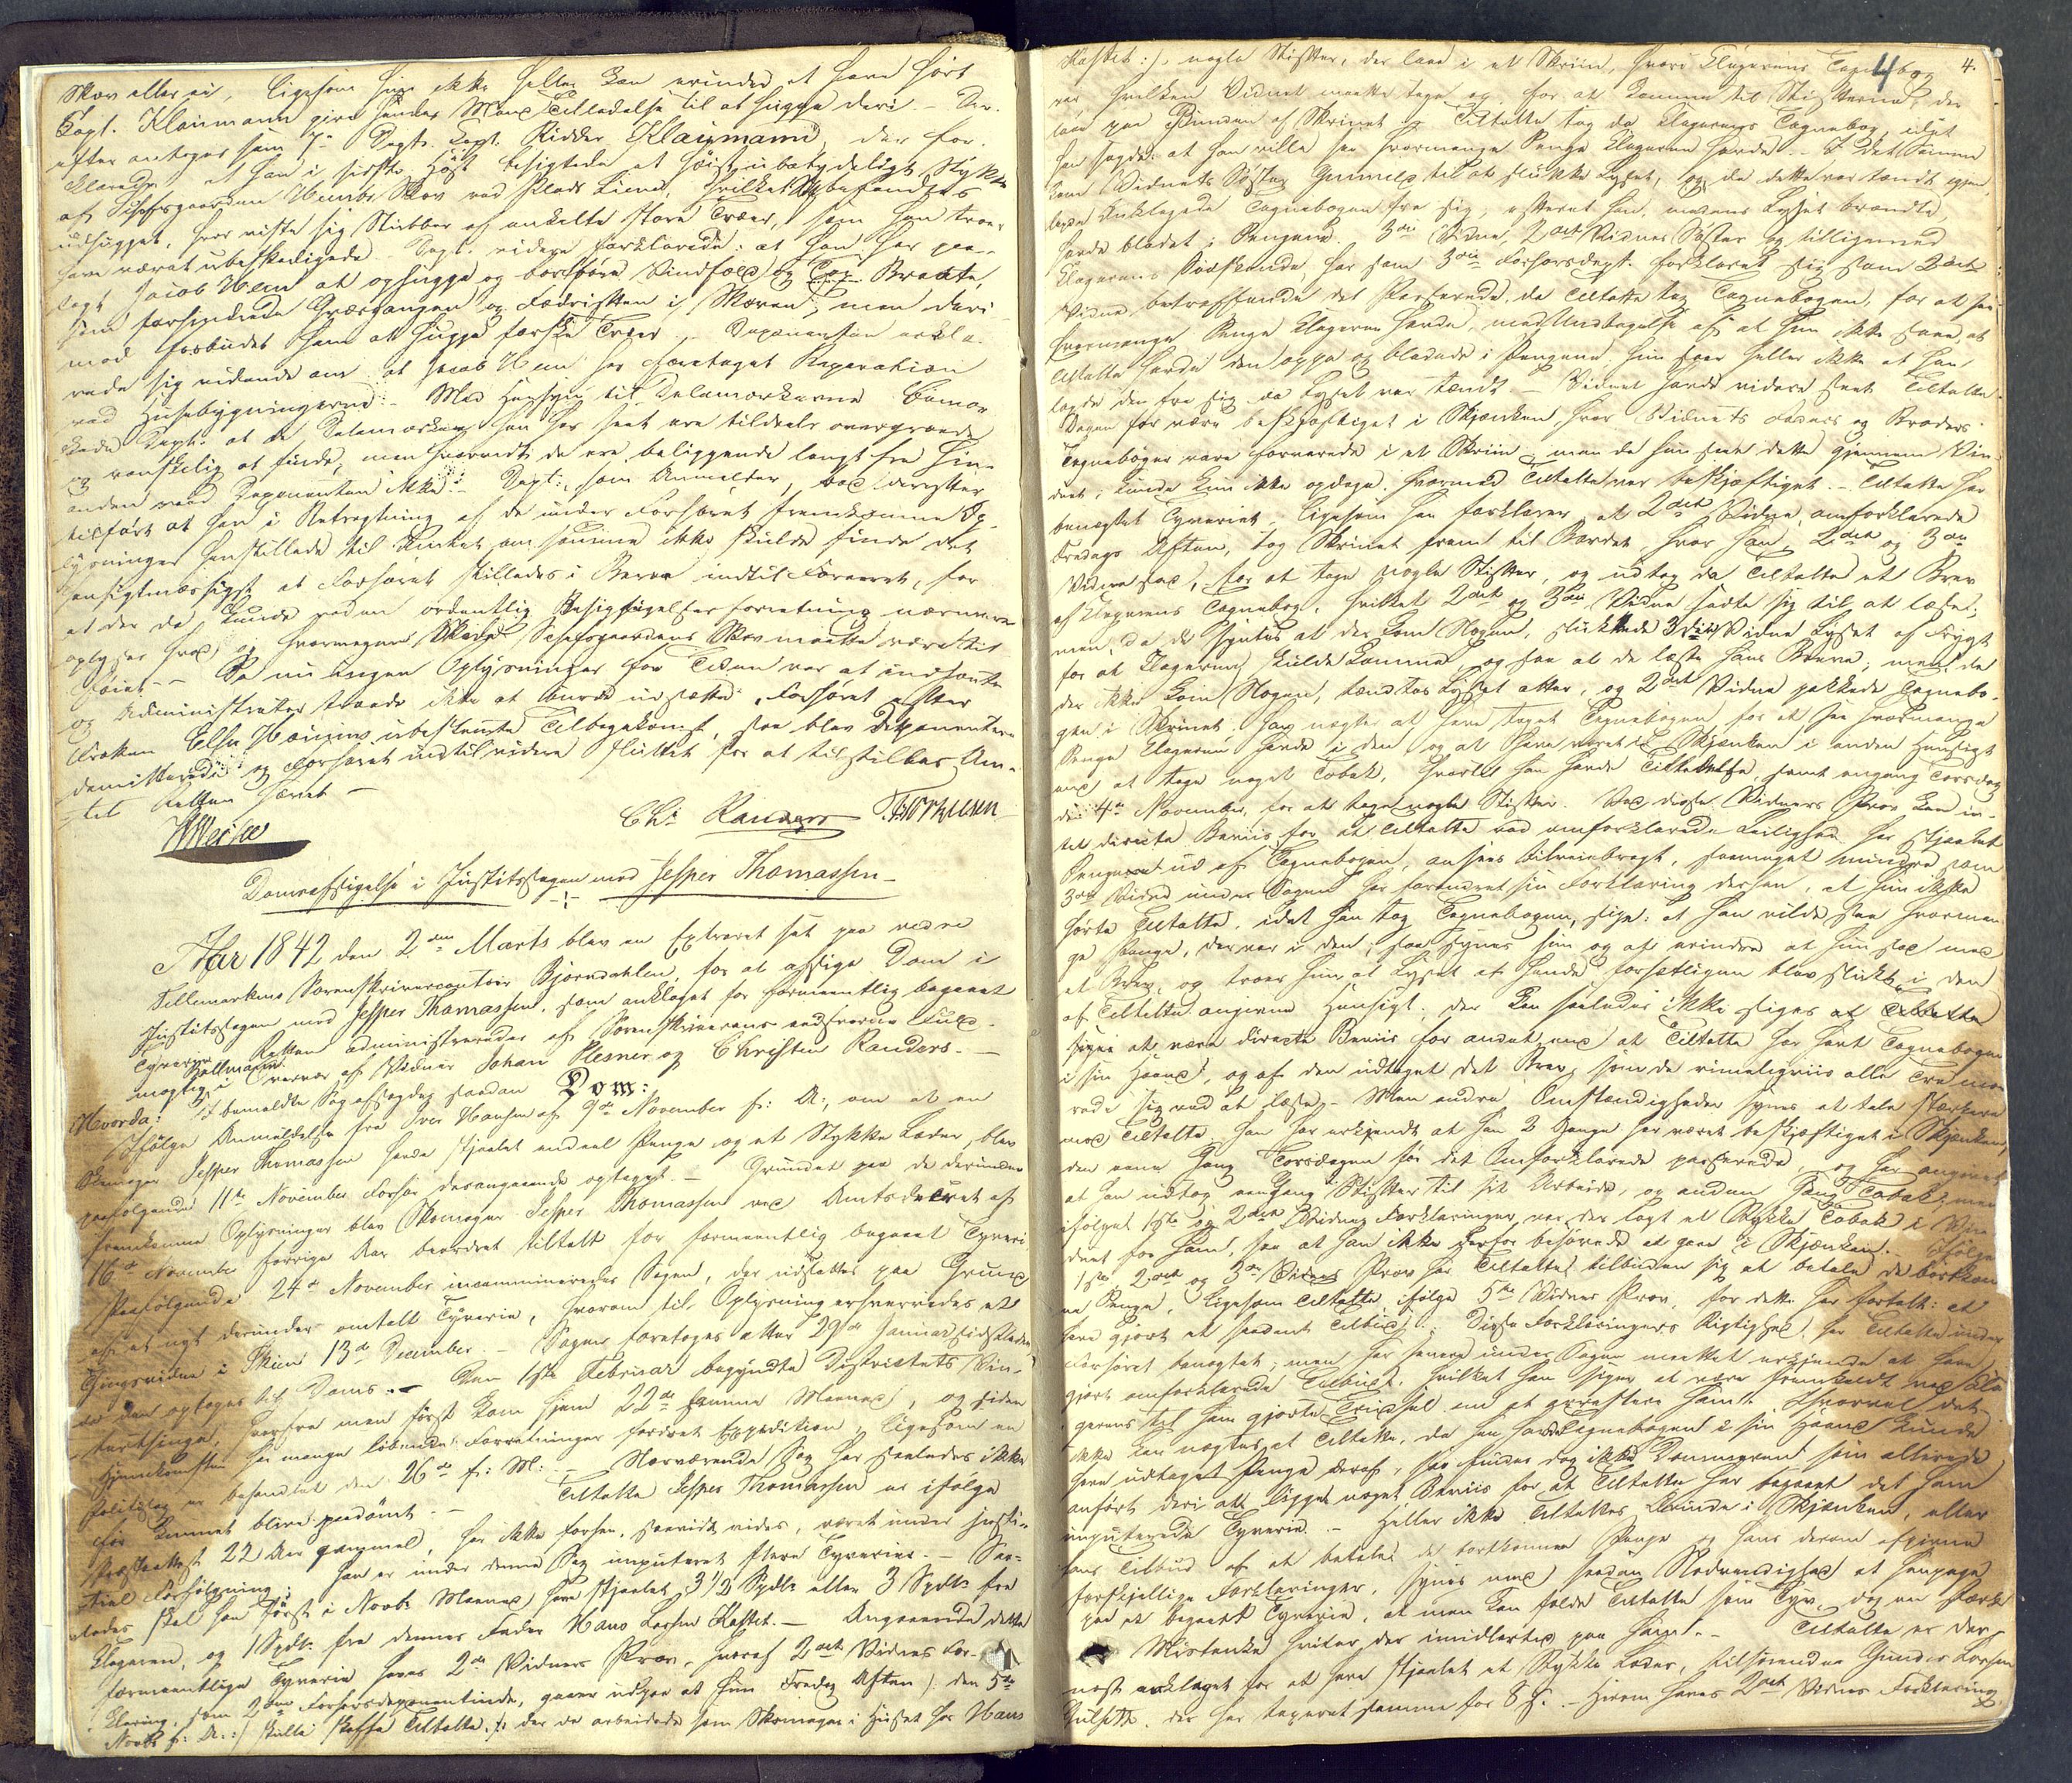 Skov eller ei, ligesom hun ikke heller kan erindre at have hørt
Capt. Klaumann give hendes Mand Tilladelse til at hugge deri. – Der-
efter antoges som 7de Dept. Capt. Ridder Klaumann, der for-
klarede at han i sidste Høst besigtede et høist ubetydeligt Stykke
af Chefsgaarden Skov ved Plads Liene, hvilket befandtes
udhugget, hvor viste sig Stubber af enkelte store Træer, som han troer
have været ubeskadigede. Dept. videre forklarede: at han har paa-
lagt Jacob at ophugge og bortføre Vindfald og Top Brækte,
som forhindrede Græsgangen og Fædriften i Skoven; men deri-
mod forbudet ham at hugge færske Træer. – Deponenten erklæ-
rede sig vidende om at Jacob har foretaget Reparation
ved Husebygningerne. – Med Hensyn til Delemærkerne bemær-
kede Dept. at de Delemærker han har seet ere tildeels overgroede
og vanskelig at finde, men hvorvidt de ere beliggende langt fra hin-
anden veed Deponenten ikke. – Dept., som Anmelder, bad derefter
tilført at han i Betragtning af de under Forhøret fremkomne Op-
lysninger henstillede til Amtet om samme ikke skulde finde det
hensigtmæssigst at Forhøret stilledes i Berøe indtil Foraaret, for
at der da kunde ved en ordentlig Besigtigelsesforretning nærmere
oplyses hvad og hvormegen Skade Chefsgaardens Skov maatte være til-
føiet. – Da nu ingen Oplysninger for Tiden var at indhente
og Administrator troede ikke at burde udsætte Forhøret efter
Frøken Else ubestemte Tilbagekomst, saa blev Deponenterne
demitterede og Forhøret indtil videre sluttet for at tilstilles Am-
tet. Retten hævet –
Chr. Randers
Domsafsigelse i Justitssagen mod Jesper Thomassen –
Aar 1842 den 2den Marts blev en Extraret sat paa nedre
Tellemarkens Sorenskrivercontoir Bjørndahlen, for at afsige Dom i
Justitssagen mod Jesper Thomassen, som anklaget for formeentlig begaaet
Tyverie. Retten administreredes af Sorenskriverens edsvorne Fuld-
mægtig i Overvær af Vidner Johan Plesner og Christen Randers. –
Hvorda: I bemeldte Sag afsagdes saadan Dom:
Ifølge Anmeldelse fra Iver Hansen af 9de November f: A:, om at en
Skomager Jesper Thomassen havde stjaalet endeel Penge og et Stykke Læder, blev
paafølgende 11te November Forhør desangaaende optaget. – Grundet paa de derunder
fremkomne Oplysninger blev Skomager Jesper Thomassen ved Amtsdecret af
16de November forrige Aar beordret tiltalt for formeentlig begaaet Tyverie.
Paafølgende 24de November incammineredes Sagen, der udsattes paa Grund
af et nyt derunder omtalt Tyverie, hvorom til Oplysning erhvervedes et
Thingsvidne i Skien 13de December. – Sagen foretoges atter 29de Januar sidstleden
da den optoges til Doms. – Den 1ste Februar begyndte Districtets Vin-
terthinge, hvorfra man først kom hjem 22de samme Maaned, og siden
Hjemkomsten har mange løbende Forretninger fordret Expedition, ligesom en
Politisag er behandlet den 26de f: M: – Nærværende Sag har saaledes ikke
før kunnet blive paadømt. – Tiltalte Jesper Thomassen er ifølge
Præsteattest 22 Aar gammel, har ikke forhen, saavidt vides, været under justi-
tiel Forfølgning; han er under denne Sag imputeret flere Tyverier. – Saa-
ledes skal han først i Novbr Maaned have stjaalet 3 1/2 Spdlr eller 3 Spdlr fra
Klageren, og 1 Spdlr fra dennes Fader Hans Larsen Kastet. – Angaaende dette
formeentlige Tyverie haves 2de Vidners Prov, hvoraf 2det Vidnes For-
klaring, som 2den Forhørsdeponentinde, gaaer ud paa at hun Fredag Aften /: den 5te
Novbr f: A: :/ skulde skaffe Tiltalte /: der da arbeidede som Skomager i Huset hos Hans
4.
Kastet :/, nogle Stifter, der laae i et Skriin, hvori Klagerens Tegnebog
var, hvilken Vidnet maatte tage op for at komme til Stifterne, der
laae paa Bunden af Skrinet. Tiltalte tog da Klagerens Tegnebog, idet
han sagde: at han ville see hvormange Penge Klageren havde. – I det Samme
kom Vidnets Søster til at slukke Lyset, og da dette var tændt igjen,
lagde Anklagede Tegnebogen fra sig, efterat han, medens Lyset brændte,
havde bladet i Pengene. 3die Vidne, 2det Vidnes Søster og tilligemed
Klagerens Sødskende, har som 3die Forhørsdept. forklaret sig som 2det
Vidne betræffende det Passerede, da Tiltalte tog Tegnebogen, for at see
hvormange Penge Klageren havde, med Undtagelse af at hun ikke saae, at
Tiltalte havde den oppe og bladede i Pengene. Hun saae heller ikke at han
lagde den fra sig da Lyset var tændt. – Vidnet havde videre seet Tiltalte
Dagen før være beskjæftiget i Skjænken, hvor Vidnets Faders og Broders
Tegnebøger vare forvarede i et Skriin, men da hun saae dette gjennem Vin-
duet, kunde hun ikke opdage, hvormed Tiltalte var beskjæftiget. – Tiltalte har
benægtet Tyveriet, ligesom han forklarer, at 2det Vidne omforklarede
Fredags Aften, tog Skrinet frem til Bordet, hvor han, 2det og 3die
Vidne sad, for at tage nogle Stifter, og udtog da Tiltalte et Brev
af Klagerens Tegnebog, hvilket 2det og 3die Vidne satte sig til at læse;
men, da de syntes at der kom Nogen, slukkede 3die Vidne Lyset af Frygt
for at Klageren skulde komme, og see at de læste hans Breve; men da
der ikke kom Nogen, tændtes Lyset atter, og 2det Vidne pakkede Tegnebo-
gen i Skrinet. Han nægter at have taget Tegnebogen for at see hvormange
Penge Klageren havde i den og at have været i Skjænken i anden Hensigt
end at tage noget Tobak, hvortil han havde Tilladelse, samt engang Torsdag
den 4de November, for at tage nogle Stifter. Ved disse Vidners Prov kan in-
tet directe Beviis for at Tiltalte ved omforklarede Leilighed har stjaalet
Pengene ud af Tegnebogen, ansees tilveiebragt, saameget mindre som
3die Vidne under Sagen har forandret sin Forklaring derhen, at hun ikke
hørte Tiltalte, idet han tog Tegnebogen, sige: at han vilde see hvorman-
ge Penge, der var i den; saa synes hun og at erindre at hun sad med
et Brev, og troer hun at Lyset af Hende forsætligen blev slukt, i den
af Tiltalte angivne Hensigt. Der kan saaledes ikke siges at Tiltalte
synes at være directe Beviis for andet, end at Tiltalte har havt Tegnebogen
i sin Haand, og af den udtaget det Brev, som de rimeligviis alle Tre more-
rede sig ved at læse. – Men andre Omstændigheder synes at tale stærkere
mod Tiltalte, han har erkjendt at han 2 Gange har været beskjæftiget i Skjænken,
den eene Gang Torsdagen før det Omforklarede passerede, og har angivet
at han udtog engang Stifter til sit Arbeide, og anden Gang Tobak; men
ifølge 1ste og 2det Vidnes Forklaringer, var der lagt et Stykke Tobak i Vin-
duet for ham, saa at han ikke derfor behøvede at gaae i Skjænken. – Ifølge
1ste, 2det og 3die Vidnes Prov har Tiltalte tilbudet sig at betale de bortkom-
ne Penge, ligesom Tiltalte ifølge 5te Vidnes Prov, for dette har fortalt: at
have gjort et saadant Tilbud. Disse Forklaringers Rigtighed har Tiltalte under
Forhøret benægtet; men har senere under Sagen maattet erkjende at have
gjort omforklarede Tilbud, hvilket han siger at være fremkaldt ved Kla-
gerens til ham gjorte Trudsel om at arrestere ham. Hvorvel det
ikke kan nægtes, at Tiltalte, da han havde Tegnebogen i sin Haand kunde
have udtaget Penge deraf, saa finder dog ikke Dommeren som allerede
anført deri at ligge noget Beviis for at Tiltalte har begaaet det ham
imputerede Tyverie. – Heller ikke Tiltaltes Ærinde i Skjænken, eller
hans Tilbud af at betale de bortkomne Penge og hans derom afgivne
forskjellige Forklaringer, synes med saadan Nødvendighed at henpege
paa et begaaet Tyverie, at man kan fælde Tiltalte som Tyv, dog en stærk
Mistanke hviler der imidlertid paa ham. – Tiltalte er der-
næst anklaget for at have stjaalet et Stykke Læder, tilhørende Gunder Larsen
Hulsette, der har taxeret samme for 8 ß. – Herom haves 2det Vidnes Forklaring,